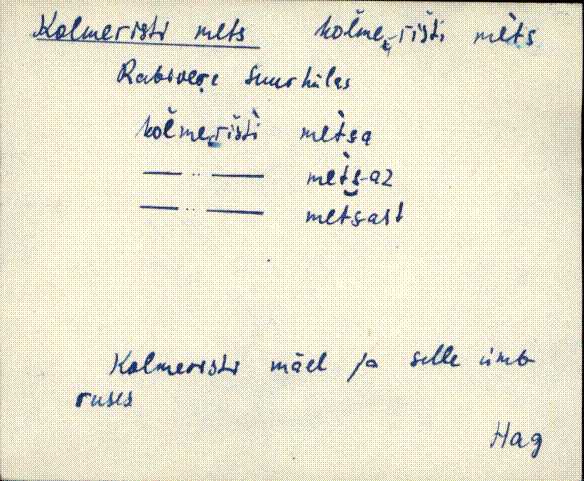 Kolmeristi mets kolme‿rišti mèts
Rabivere Suurkülas
kolme‿rišti mètsa
— ·· — mèts-az
— ·· — metsast
Kolmeristi mäel ja selle ümb
ruses
Hag